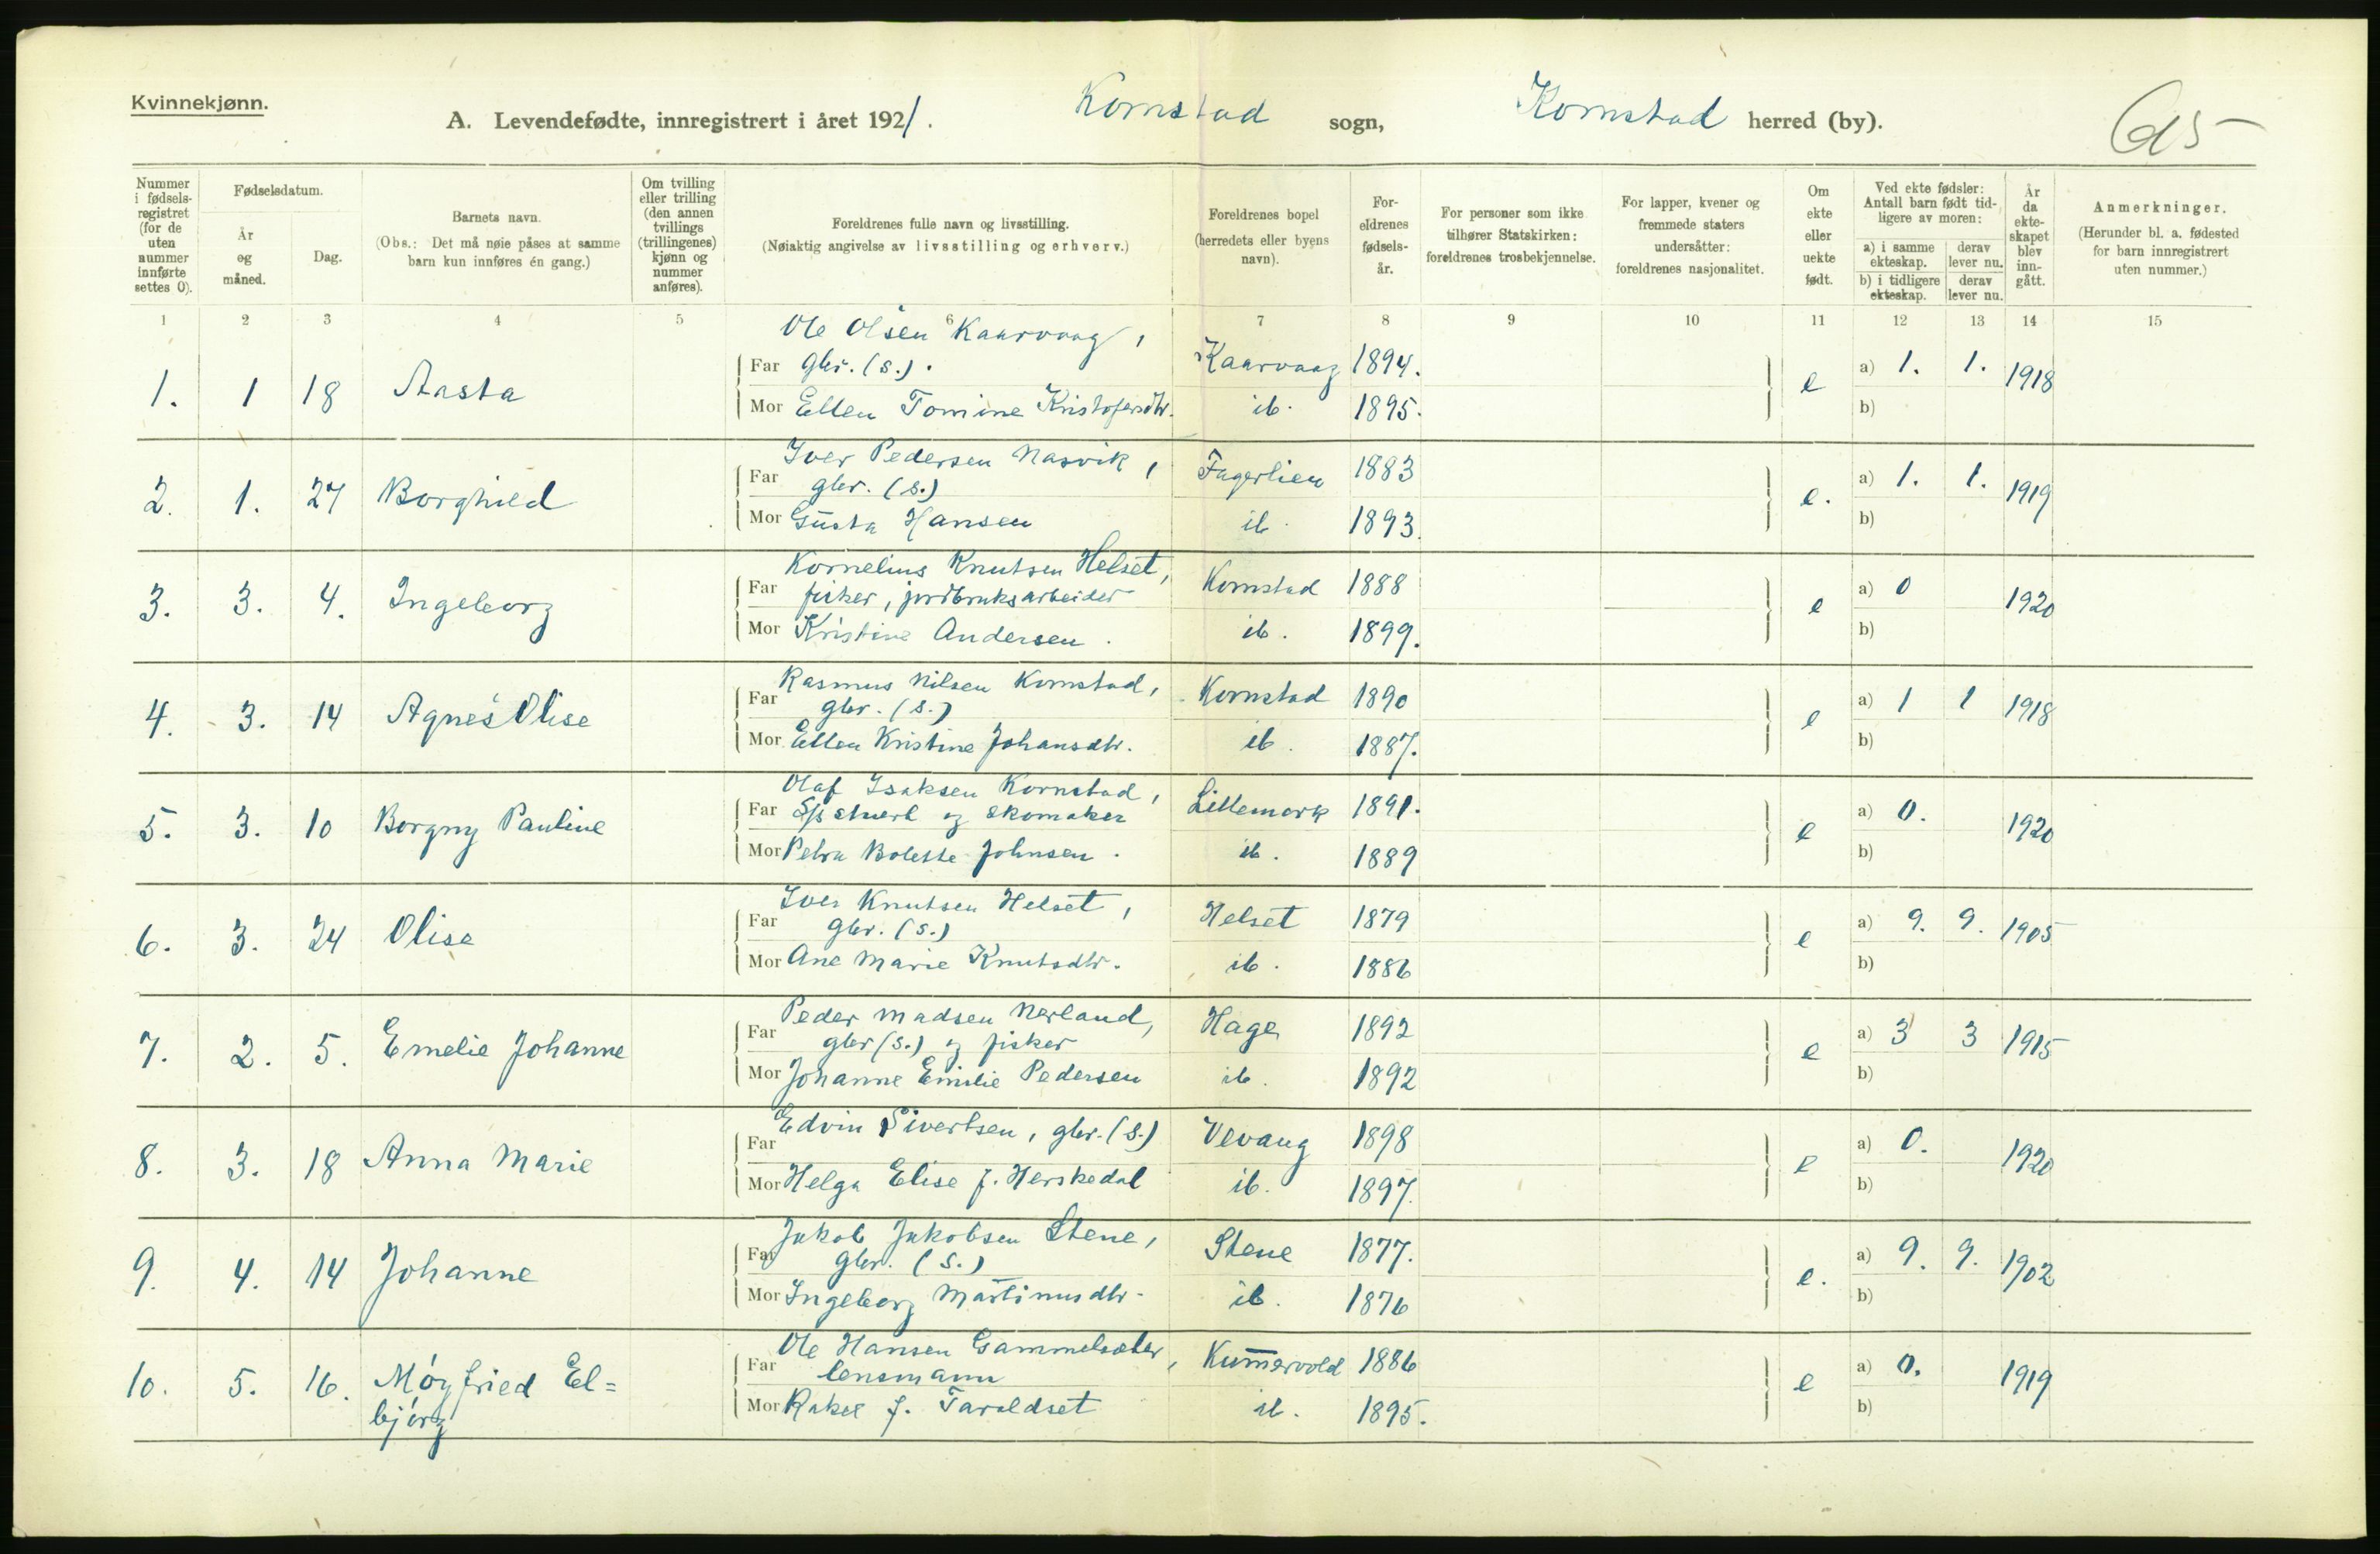 Kvinnekjønn.
A. Levendefødte, innregistrert i året 1921. Kornstad sogn, Kornstad herred (by).
Nummer i fødsels-registret (for de uten nummer innførte settes 0).
Fødselsdatum.
År og måned.
Dag.
Barnets navn.
(Obs.: Det må nøie påses at samme barn kun innføres én gang.)
Om tvilling eller trilling (den annen tvillings (trillingenes) kjønn og nummer anføres).
Foreldrenes fulle navn og livsstilling.
(Nøiaktig angivelse av livsstilling og erhverv.)
Foreldrenes bopel (herredets eller byens navn).
For-eldrenes fødsels-år.
For personer som ikke tilhører Statskirken: foreldrenes trosbekjennelse.
For lapper, kvener og fremmede staters undersåtter: foreldrenes nasjonalitet.
Om ekte eller uekte født.
Ved ekte fødsler: Antall barn født tid-ligere av moren:
a) i samme ekteskap. derav lever nu.
b) i tidligere ekteskap. derav lever nu.
År da ekte-skapet blev inn-gått.
Anmerkninger.
(Herunder bl. a. fødested for barn innregistrert uten nummer.)
1 2 3 4 5 6 7 8 9 10 11 12 13 14 15
Ole Olsen Kaarvaag,
1. 1 18 Aasta Far gbr. (s.). Kaarvaag 1894. e a) 1. 1. 1918
Mor Ellen Tomine Kristofersdtr. ib. 1895. b)
Iver Pedersen Nasvik,
2. 1. 27 Borghild Far gbr. (s.) Fagerlien 1883 e. a) 1. 1. 1919
Mor Gusta Hansen ib. 1893. b)
Kornelius Knutsen Helset,
3. 3. 4. Ingeborg Far fisker, jordbruksarbeider Kornstad 1888 e a) 0 1920
Mor Kristine Andersen. ib. 1899. b)
Rasmus Nilsen Kornstad,
4. 3. 14 Agnes Olise Far gbr. (s.) Kornstad 1890 e a) 1 1 1918
Mor Ellen Kristine Johansdtr. ib. 1887. b)
Olaf Isaksen Kornstad,
5. 3. 10 Borgny Pauline Far og skomaker Lillemork 1891. e a) 0. 1920
Mor Petra Bolette Johnsen. ib. 1889 b)
Iver Knutsen Helset,
6. 3. 24 Olise Far gbr. (s.) Helset 1879 e a) 9. 9. 1905
Mor Ane Marie Knutsdtr. ib. 1886 b)
Peder Madsen Nerland,
7. 2. 5. Emelie Johanne Far gbr (s.) og fisker Hage 1892 e a) 3 3 1915
Mor Johanne Emilie Pedersen ib. 1892 b)
Edvin Sivertsen, gbr. (s.)
8. 3. 18 Anna Marie Far Vevang 1898 e a) 0. 1920
Mor Helga Elise J. Herskedal ib. 1897. b)
Jakob Jakobsen Stene,
9. 4. 14 Johanne Far gbr. (s.) Stene 1877. e. a) 9. 9. 1902
Mor Ingeborg Martinusdtr. ib. 1876 b)
Ole Hansen Gammelsæter,
10. 5. 16. Møyfried El= Far lensmann 1886 e a) 0. 1919
bjørg Mor Rakel J. Taraldset ib. 1895. b)